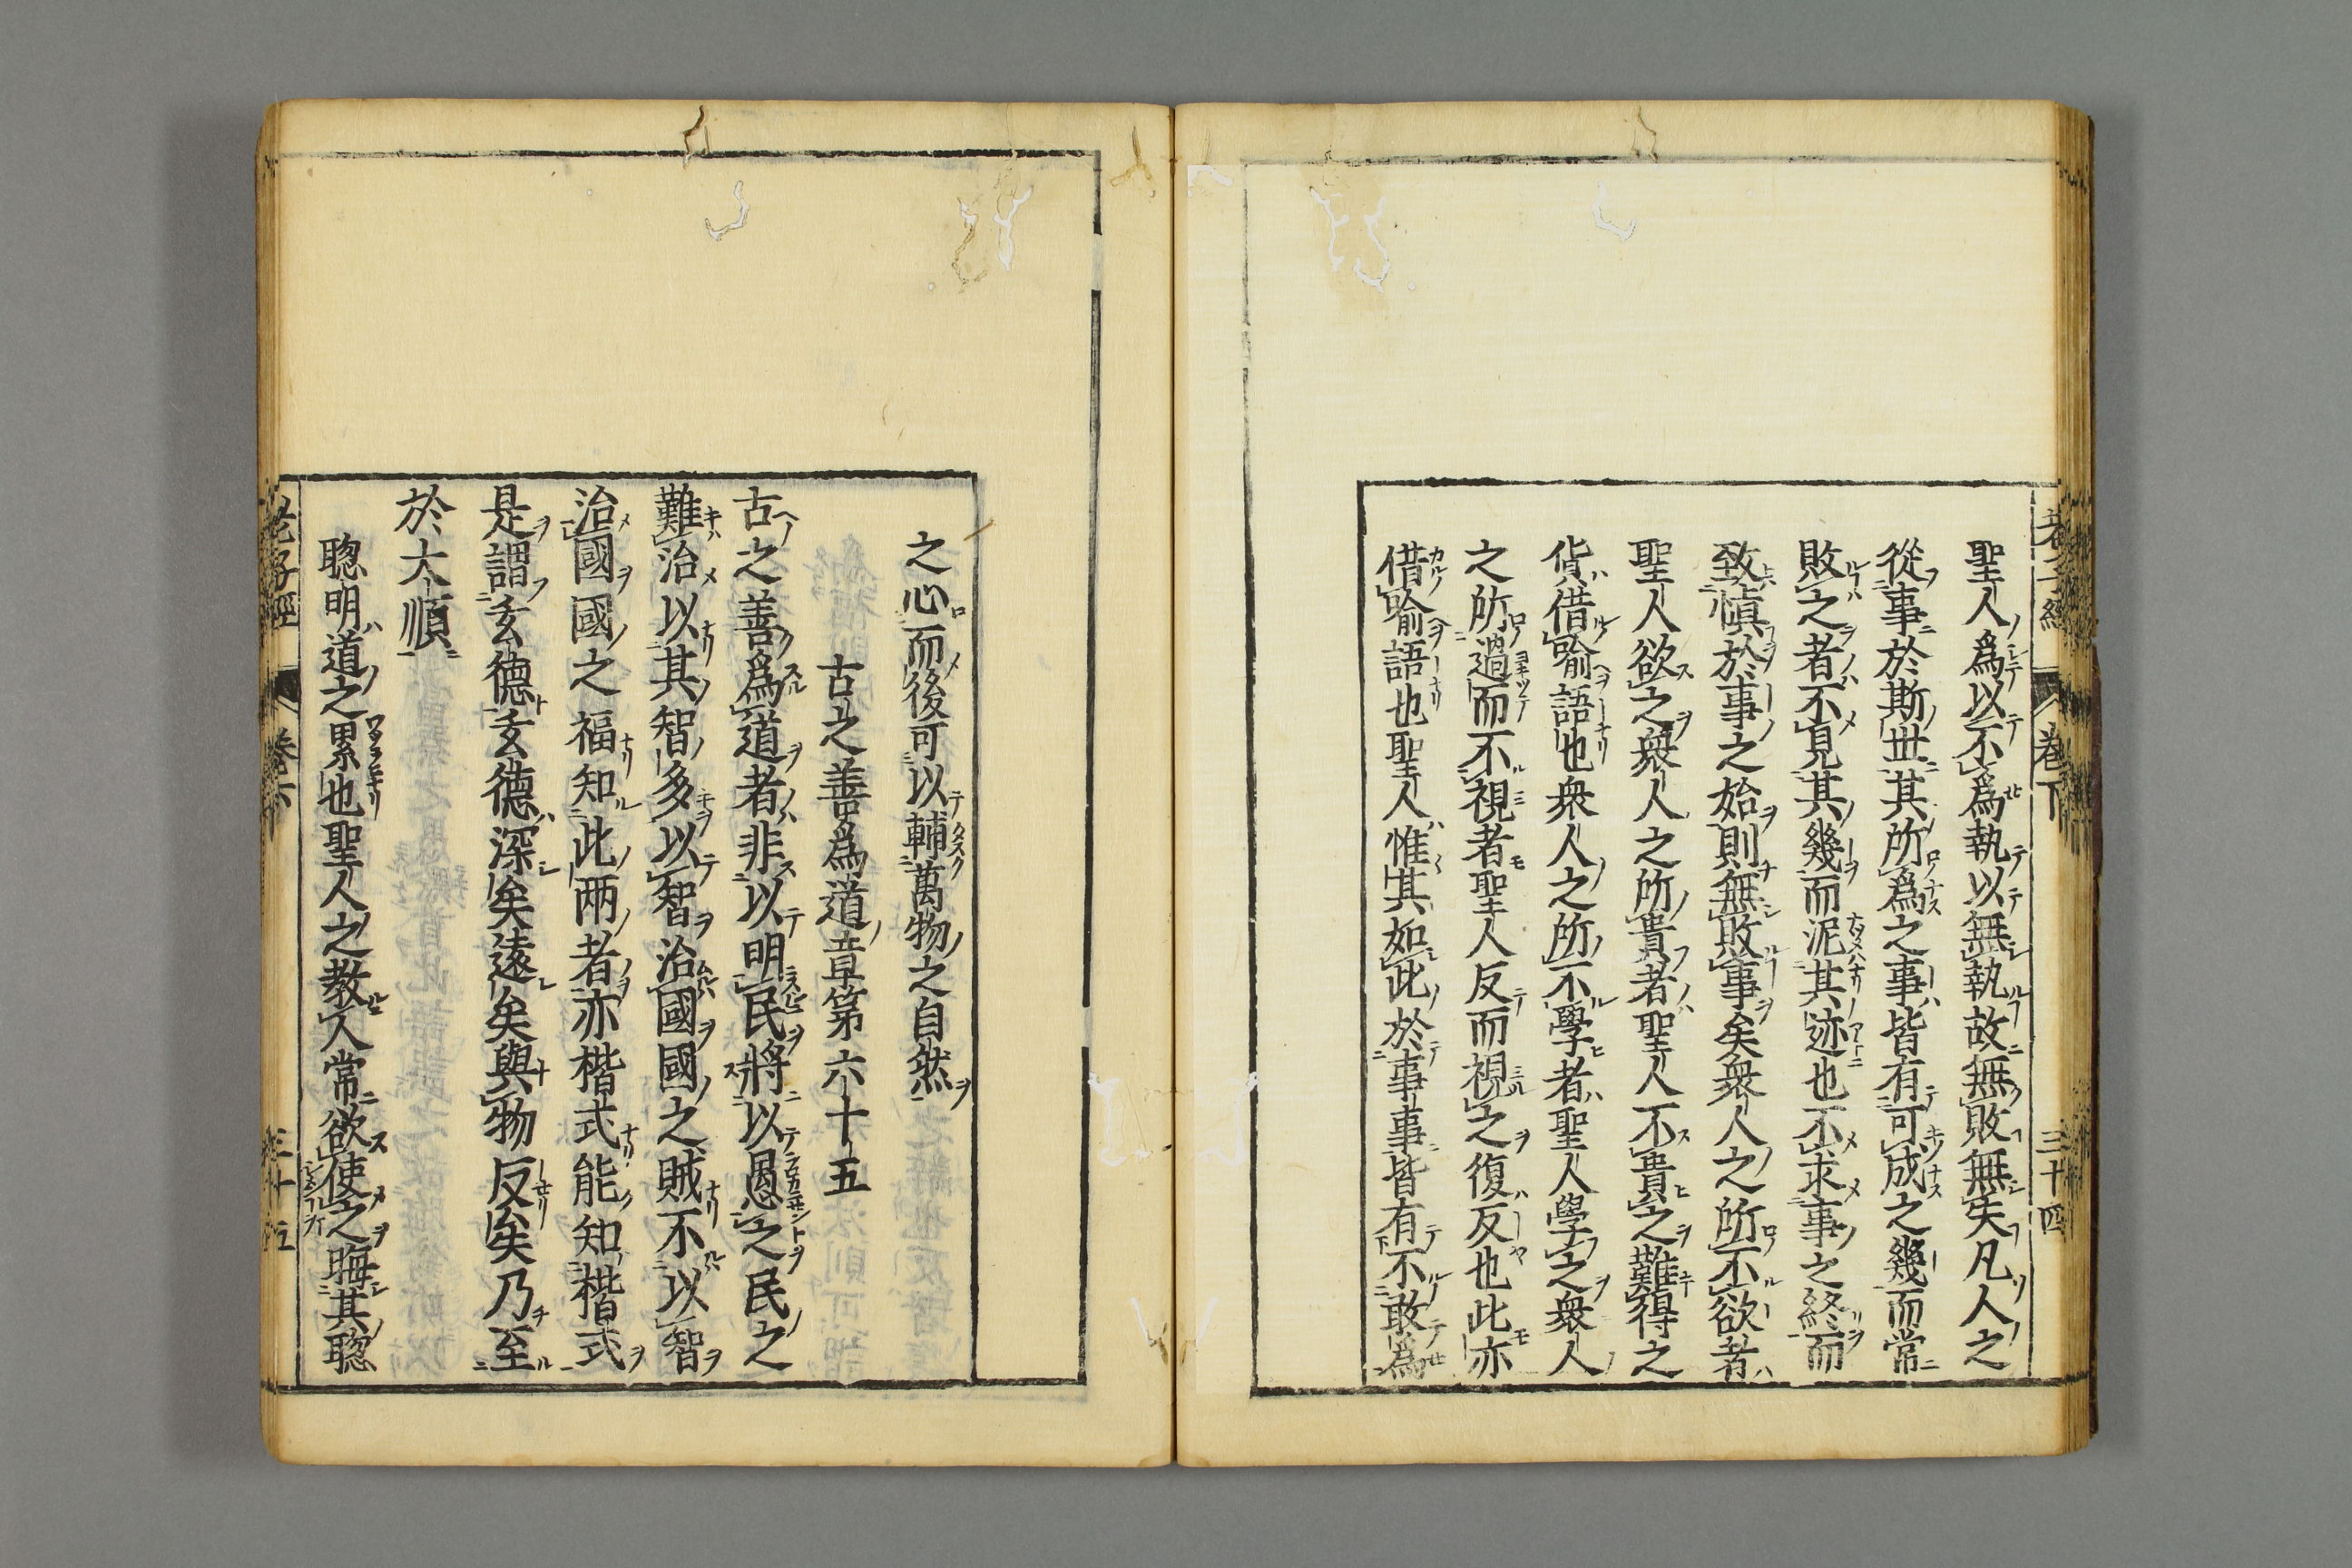 聖人爲以不爲執以無執故無敗無失凡人之
從事於斯世其所爲之事皆有可成之幾而常
敗之者不見其幾而泥其迹也不求事之終而
致愼於事之始則無敗事矣衆人之所不欲者
聖人欲之衆人之所貴者聖人不貴之難得之
貨借喻語也衆人之所不學者聖人學之衆人
之所過而不視者聖人反而視之復反也此亦
借喻語也聖人惟其如此於事事皆有不敢爲
之心而後可以輔萬物之自然
古之善爲道章第六十五
古之善爲道者非以明民將以愚之民之
難治以其智多以智治國國之賊不以智
治國國之福知此两者亦楷式能知楷式
是謂玄德玄德深矣遠矣與物反矣乃至
於大順
聰明道之累也聖人之教人常欲使之晦其聰
老子經 卷下 三十四